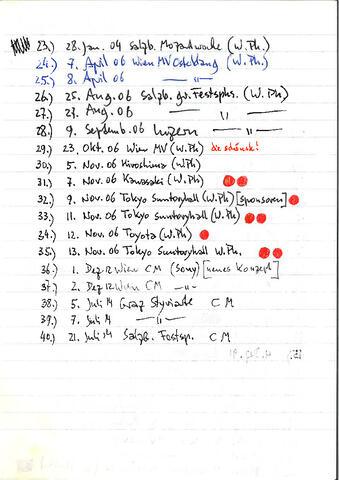 23.) 28. Jan. 04 Salzb. Mozartwoche (W.Ph.)
24.) 7. April 06 Wien MV Osterklang (W.Ph.)
25.) 8. April 06 — " —
26.) 25. Aug. 06 Salzb. gr. Festsphs. (W.Ph)
27.) 27. Aug. 06 — " —
28.) 9. Septemb. 06 Luzern — " —
29.) 23. Okt. 06 Wien MV (W.Ph)
30.) 5. Nov. 06 Hiroshima (W.Ph)
31.) 7. Nov. 06 Kawasaki (W.Ph)
32.) 9. Nov. 06 Tokyo Suntoryhall (W.Ph) [Sponsoren]
33.) 11. Nov. 06 Tokyo Suntoryhall (W.Ph)
34.) 12. Nov. 06 Toyota (W.Ph)
35.) 13. Nov. 06 Tokyo Suntoryhall W.Ph.
36.) 1. Dez. 12 Wien CM (Sony) [neues Konzept]
37.) 2. Dez. 12 Wien CM — " —
38.) 5. Juli 14 Graz Styriarte CM
39.) 7. Juli 14 — " —
40.) 21. Juli 14 Salzb. Festsp. CM